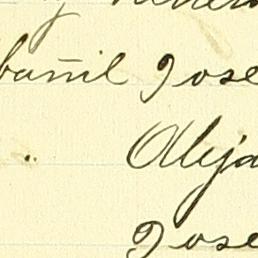 bañil Jose
" Aleja
Jose